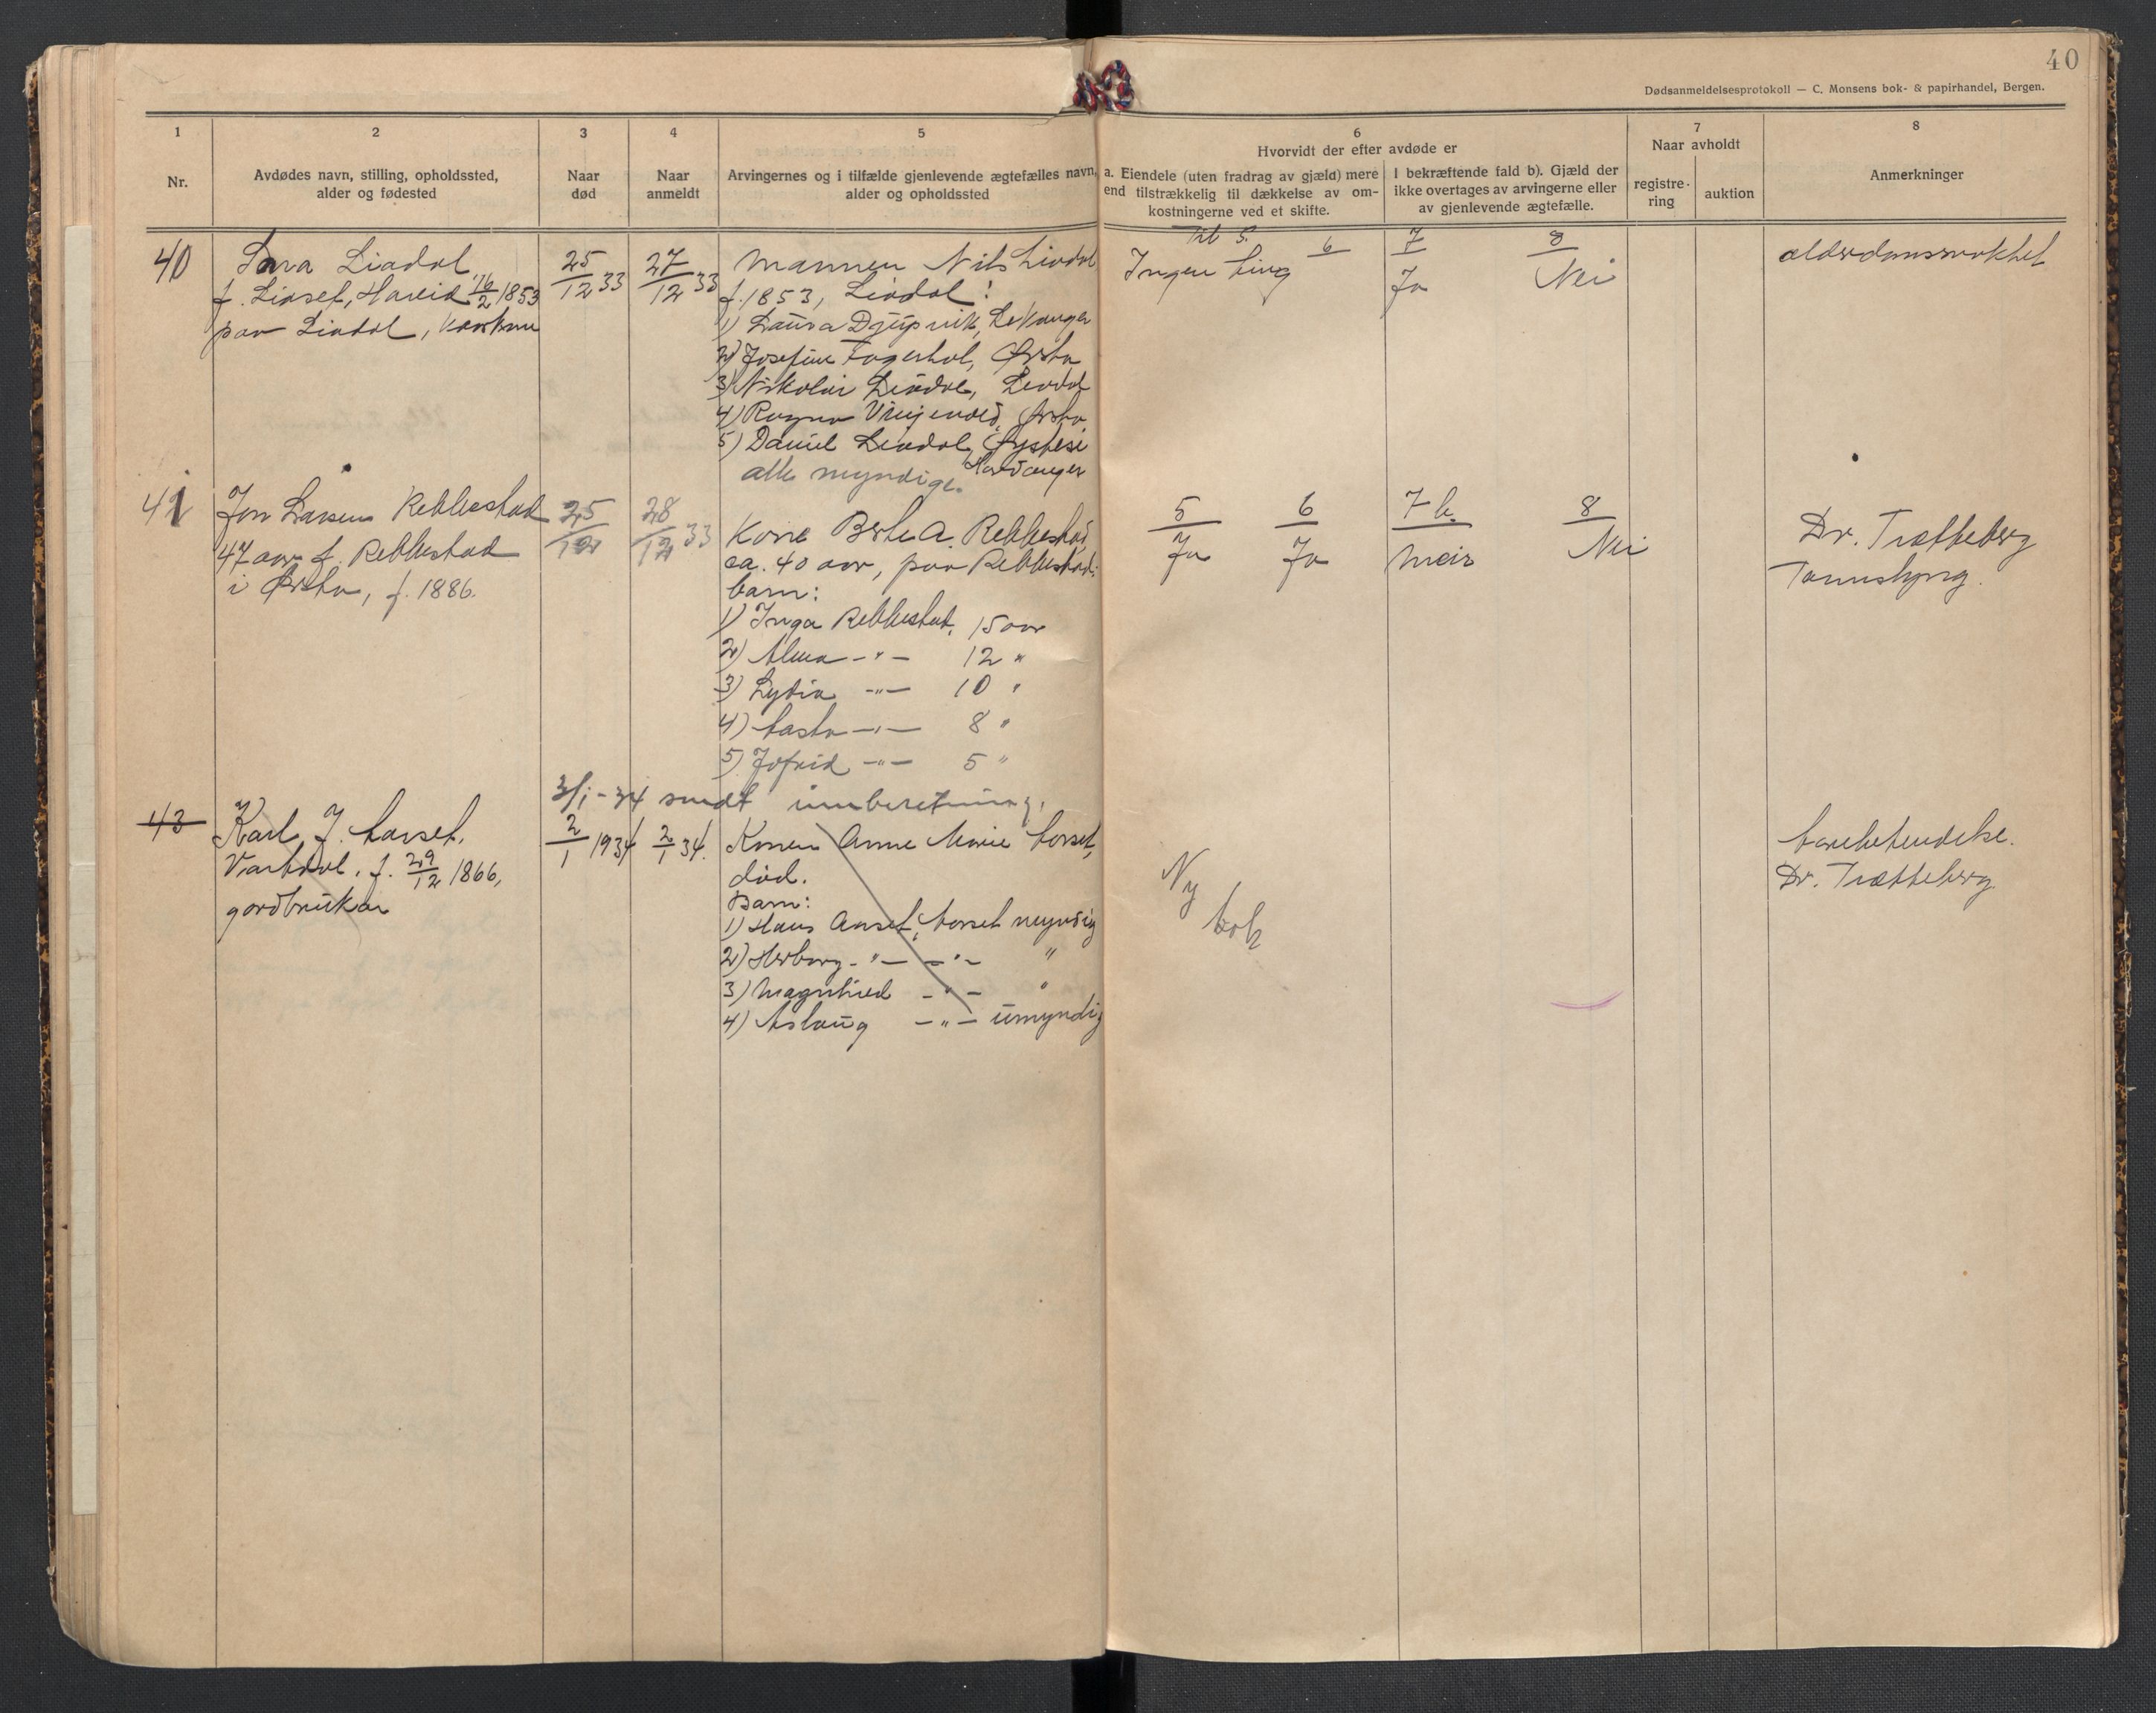 40
Dødsanmeldelsesprotokoll — C. Monsens bok- & papirhandel, Bergen.
1
Nr.
2
Avdødes navn, stilling, opholdssted,
alder og fødested
3
Naar
død
4
Naar
anmeldt
5
Arvingernes og i tilfælde gjenlevende ægtefælles navn,
alder og opholdssted
6
Hvorvidt der efter avdøde er
a. Eiendele (uten fradrag av gjæld) mere
end tilstrækkelig til dækkelse av om-
kostningerne ved et skifte.
I bekræftende fald b). Gjæld der
ikke overtages av arvingerne eller
av gjenlevende ægtefælle.
7
Naar avholdt
registre-
ring
auktion
8
Anmerkninger
40
Liadal
f. Liaset, Hareid 16/2 1853
paa Liadal,
25/12 33
27/12 33
Mannen Nils Liadal
f. 1853, Liadal:
1) Laura Djupvik, Lekanger
2) Josefine Fagerhol, Ørsta
3) Nikolai Liadal, Liadal
4) Ragna Ørsta
5) Daniel Liadal, Øystesi
Hardanger
alle myndige.
Til 5.
Ingen ting
6
7
Ja
8
Nei
alderdomssvakhet
41
Jon Larsen Rebbestad
47 aar f. Rebbestad
i Ørsta, f. 1886.
25/12
28/12 33
Kone Brte A. Rebbestad
ca. 40 aar, paa Rebbestad:
barn:
1) Inga Rebbestad, 15 aar
2) Alma -"- 12 "
3) Lydia -"- 10 "
4) Aasta -"- 8 "
5) Jofrid -"- 5 "
5
Ja
6
Ja
7 b.
Meir
8
Nei
Dr. Trætteberg
Tønnsbjerg.
3/1-34 sendt innberetning.
43
Karl J. Aarset,
Vartdal. f. 29/12 1866,
gardbrukar
2/1 1934
2/1 34.
Konen Anne Marie Aarset,
død.
Barn:
1) Hans Aarset, Aarset myndig
2) Herborg -"- -"- "
3) Magnhild -"- "
4) Aslaug -"- umyndig
Ny
bok
Dr. Trætteberg